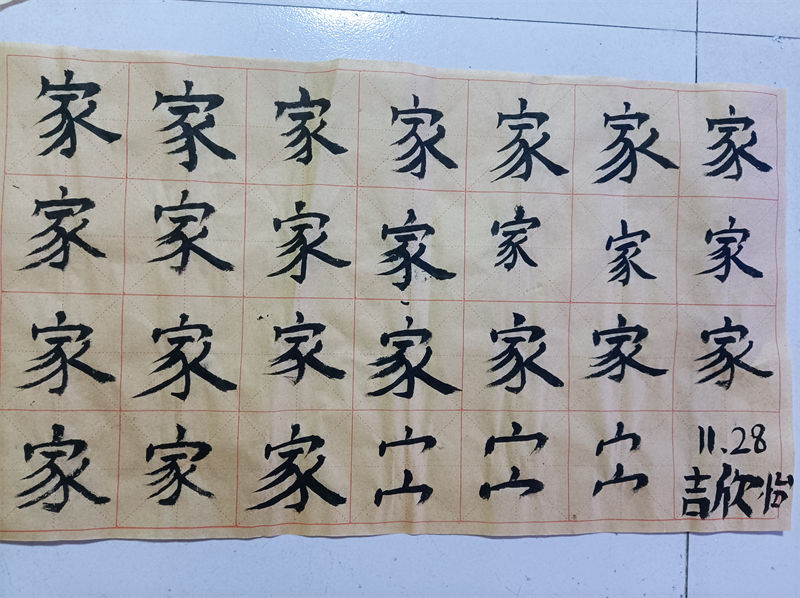 家家家家家家家
家家家家家家家
家家家家家家家
家家家宀宀宀宀宀宀11.28
吉欣怡